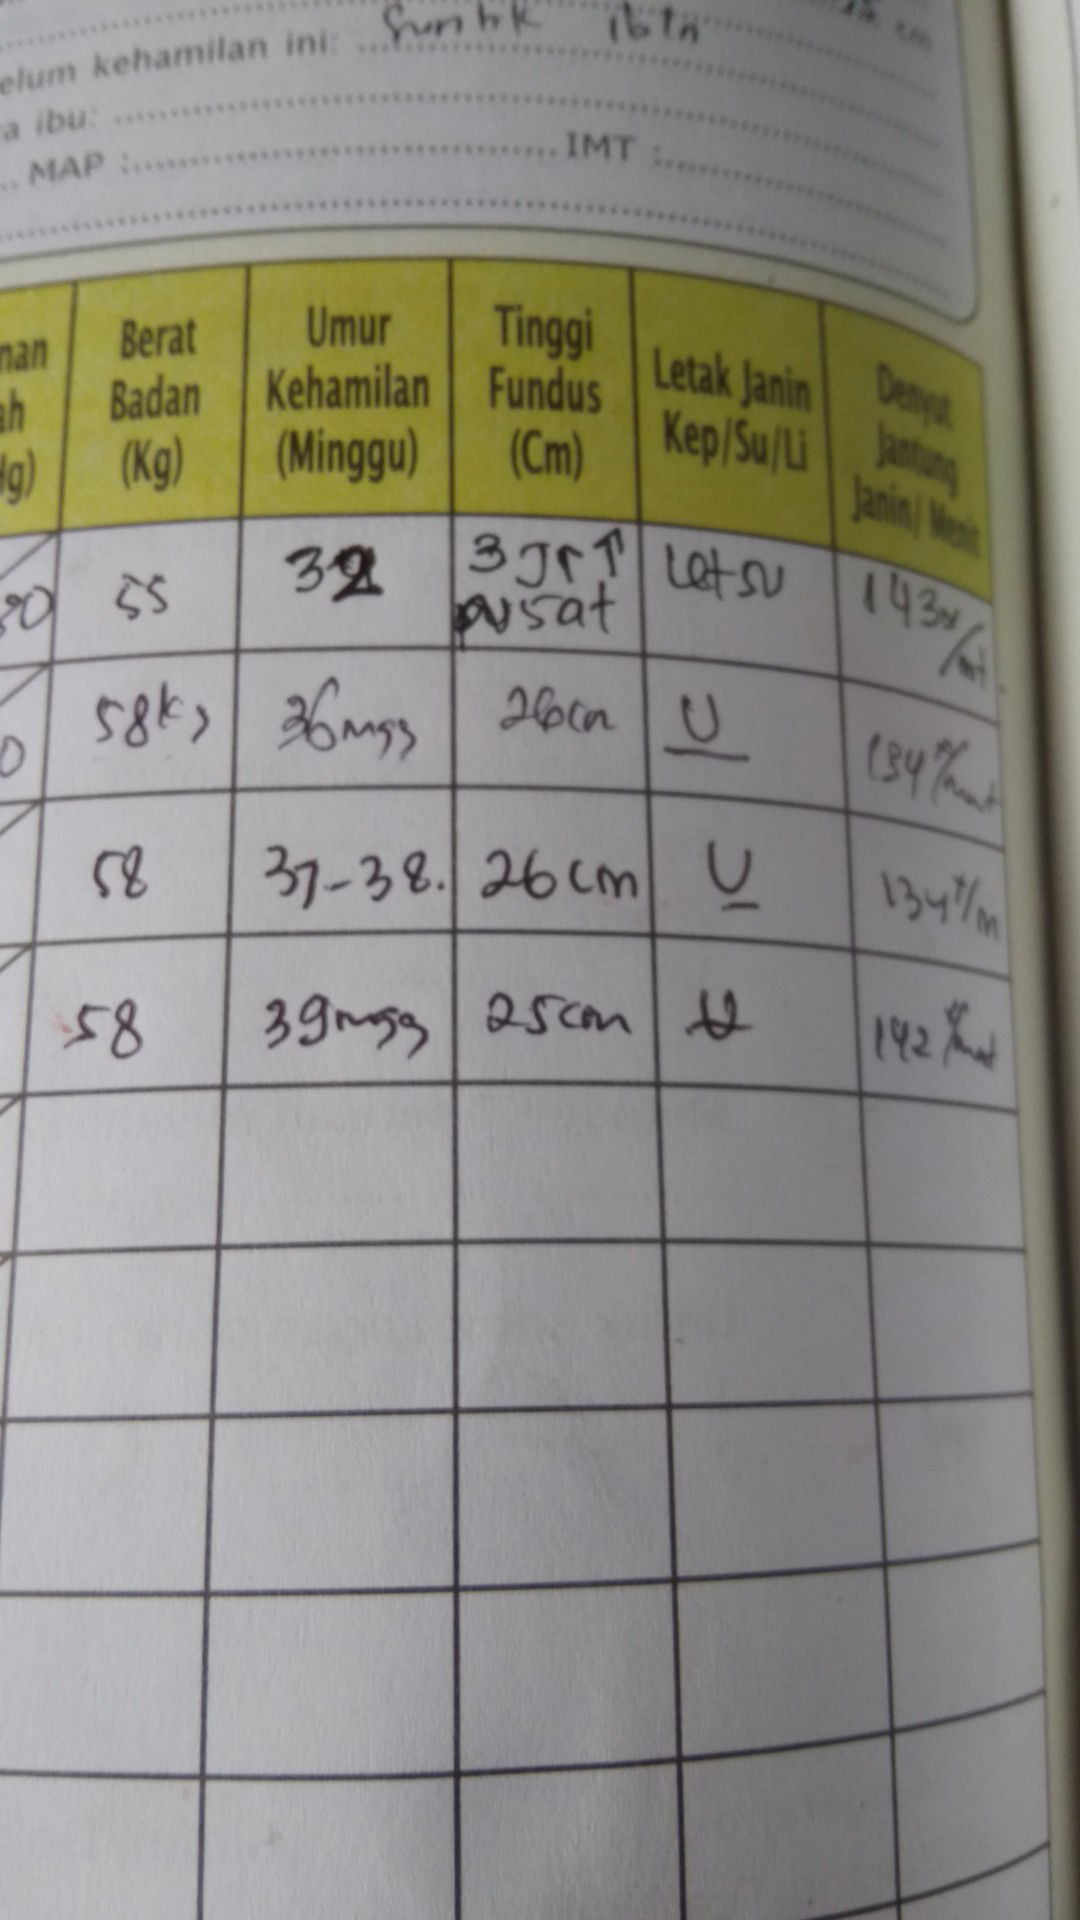 elum kehamilan ini: Suntik 1bln
a ibu:
MAP : IMT :
Berat Badan (Kg)
Umur Kehamilan (Minggu)
Tinggi Fundus (Cm)
Letak Janin Kep/Su/Li
Denyut Jantung Janin/ Menit
55 32 3 Jr ↑ pusat Letsu 143x/mt
58kg 36mgg 26cm U 134x/mnt
58 37-38. 26cm U 134x/m
58 39mgg 25cm U 142x/mnt